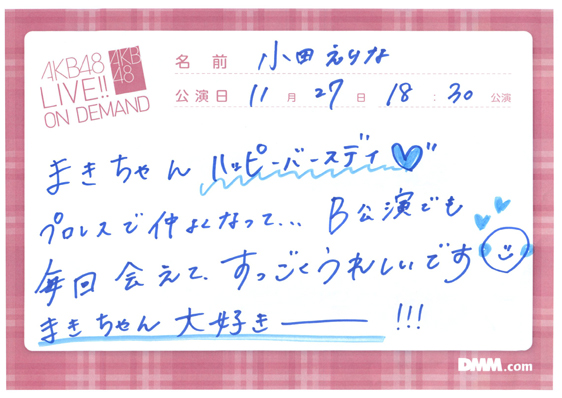 AKB48
LIVE!!
ON DEMAND
AKB
48
名前 小田えりな
公演日 11月27日 18:30公演
まきちゃん ハッピーバースデイ
プロレスで仲よくなって... B公演でも
毎回会えて、すっごくうれしいです
まきちゃん大好きーーー!!!
DMM.com